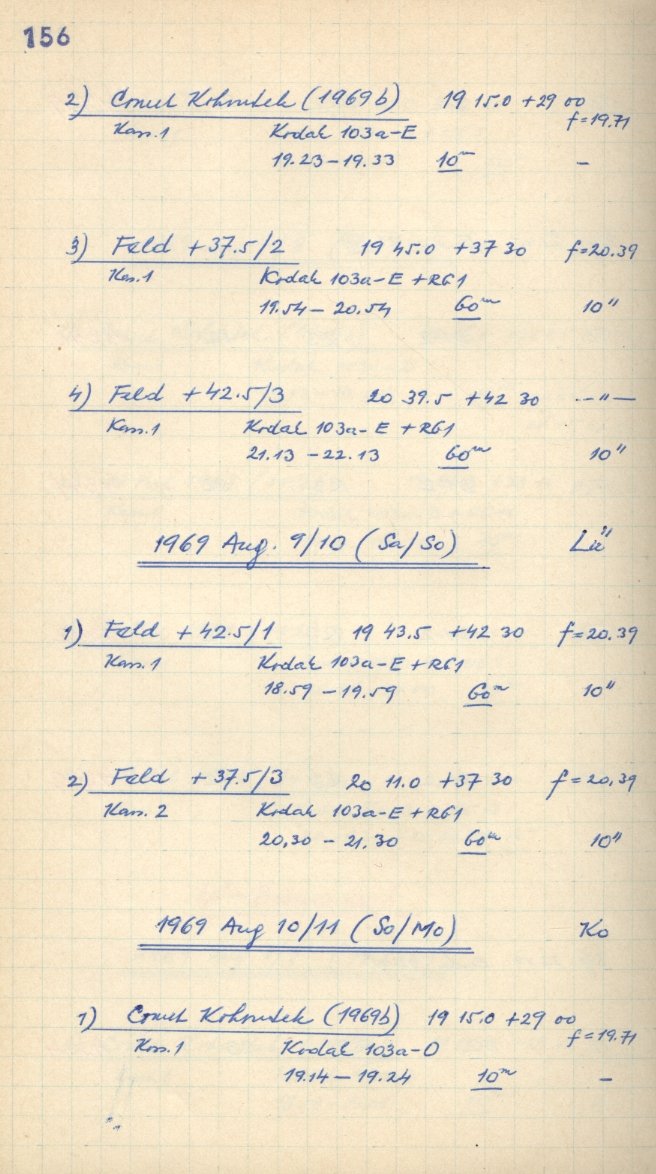 156
2) Comet Kohoutek (1969b) 19 15.0 +29 00
f=19.71
Kass.1 Kodak 103a-E
19.23-19.33 10m -
3) Feld +37.5/2 19 45.0 +37 30 f=20.39
Kas.1 Kodak 103a-E +RG1
19.54-20.54 60m 10"
4) Feld +42.5/3 20 39.5 +42 30 -"-
Kass.1 Kodak 103a-E +RG1
21.13-22.13 60m 10"
1969 Aug. 9/10 (Sa/So) Lü
1) Feld +42.5/1 19 43.5 +42 30 f=20.39
Kass.1 Kodak 103a-E +RG1
18.59-19.59 60m 10"
2) Feld +37.5/3 20 11.0 +37 30 f=20,39
Kass.2 Kodak 103a-E +RG1
20,30-21.30 60m 10"
1969 Aug 10/11 (So/Mo) Ko
1) Comet Kohoutek (1969b) 19 15.0 +29 00
f=19.71
Kass.1 Kodak 103a-O
19.14-19.24 10m -